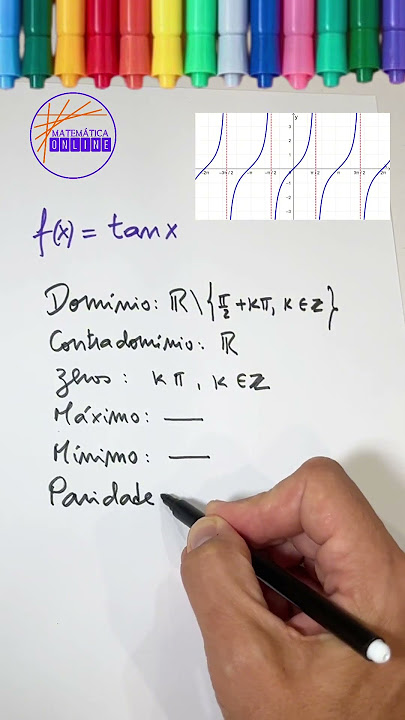 MATEMÁTICA
ONLINE
y
3
2
1
-1
-2
-3
-2π -3π/2 -π -π/2 π/2 π 3π/2 2π x
f(x) = tan x
Domínio: ℝ\{π/2 + kπ, k ∈ ℤ}
Contradomínio: ℝ
zeros: kπ, k ∈ ℤ
Máximo: —
Mínimo: —
Paridade